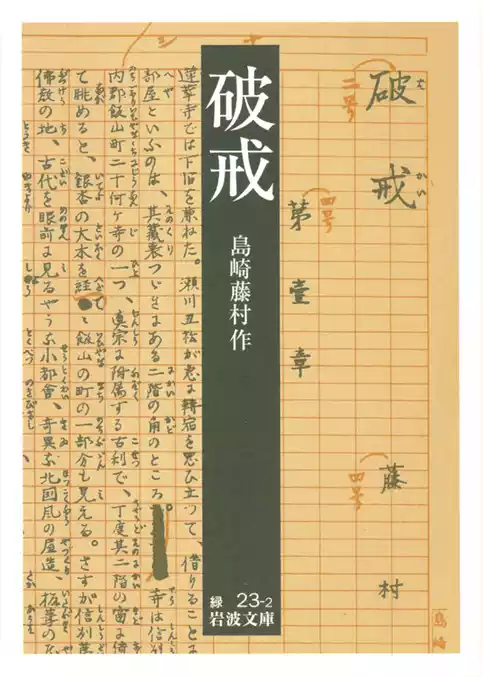 破戒
二号
第壹章
四号
藤村
四号
島崎
破戒
島崎藤村作
緑 23-2
岩波文庫
蓮華寺では下宿を兼ねた。瀬川丑松が急に轉宿を思ひ立つて、借りること
部屋といふのは、其藏裏つゞきにある二階の角のところ 寺は信州
内郡飯山町二十何ヶ寺の一つ、真宗に附属する古刹で、丁度其二階の窓に倚
て眺めると、銀杏の大木を経 と飯山の町の一部分も見える。さすが信州第
佛教の地、古代を眼前に見るやうな小都會、奇異な北國風の屋造、板葺の